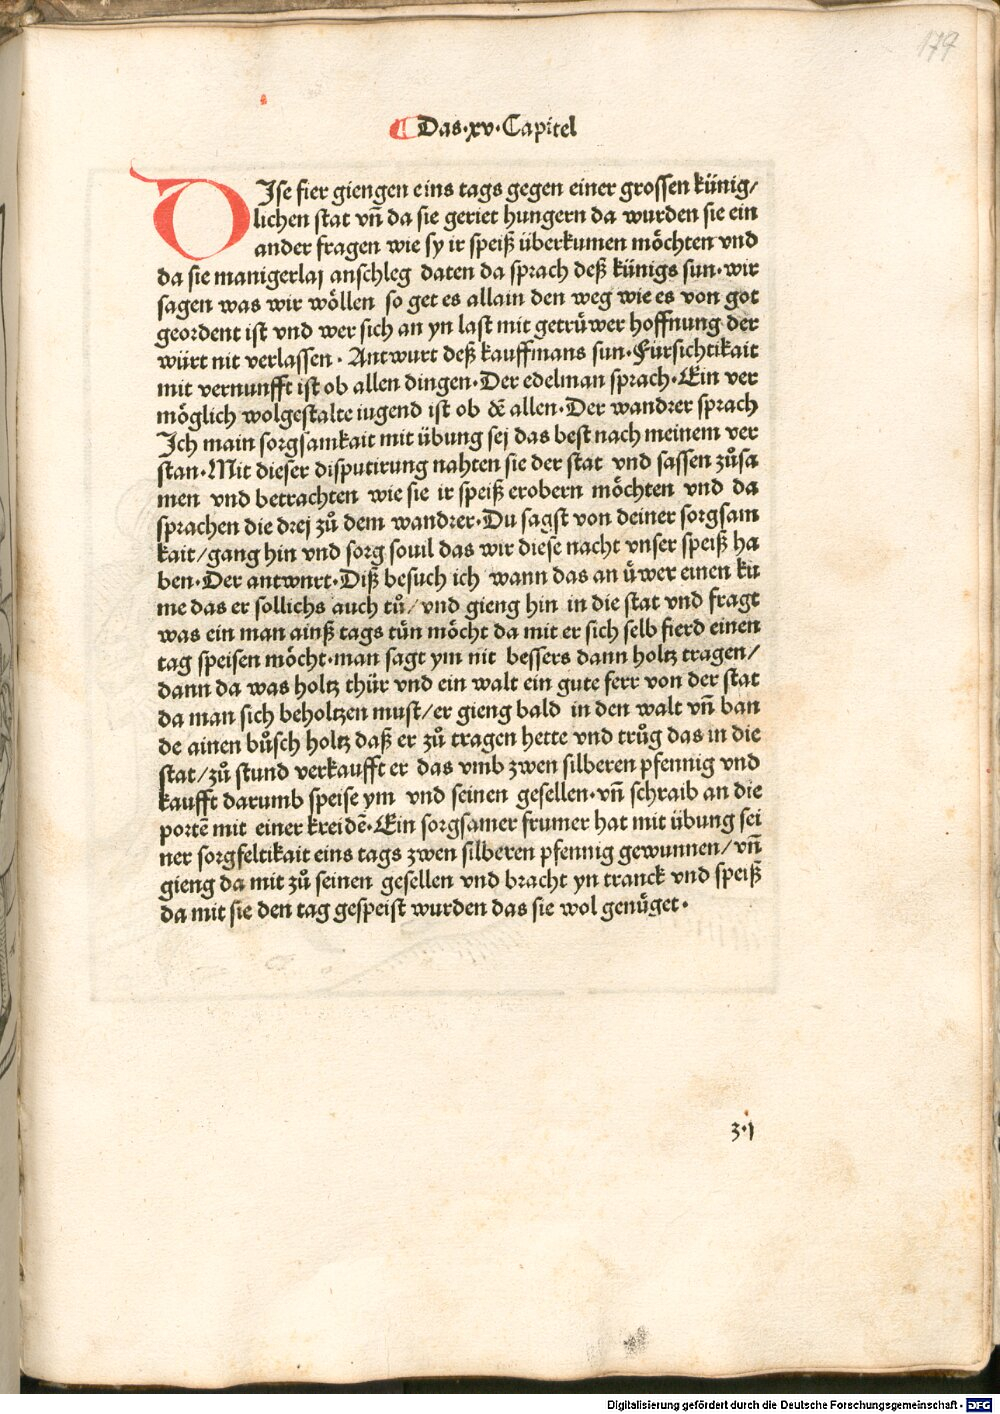 179
¶ Das·xv·Capitel
DJse fier giengen eins tags gegen einer grossen künig/
lichen stat vn̄ da sie geriet hungern da wurden sie ein
ander fragen wie sy ir speiß überkumen möchten vnd
da sie manigerlaj anschleg daten da sprach deß künigs sun·wir
sagen was wir wöllen so get es allain den weg wie es von got
geordent ist vnd wer sich an yn last mit getrüwer hoffnung der
würt nit verlassen· Antwurt deß kauffmans sun·Fürsichtikait
mit vernunfft ist ob allen dingen·Der edelman sprach·Ein ver
möglich wolgestalte iugend ist ob dē allen·Der wandrer sprach
Jch main sorgsamkait mit übung sej das best nach meinem ver
stan·Mit dieser disputirung nahten sie der stat vnd sassen zůsa
men vnd betrachten wie sie ir speiß erobern möchten vnd da
sprachen die drej zů dem wandrer·Du sagst von deiner sorgsam
kait/gang hin vnd sorg souil das wir diese nacht vnser speiß ha
ben·Der antwnrt·Diß besuch ich wann das an üwer einen ku
me das er sollichs auch tů/vnd gieng hin in die stat vnd fragt
was ein man ainß tags tün möcht da mit er sich selb fierd einen
tag speisen möcht·man sagt ym nit bessers dann holtz tragen/
dann da was holtz thür vnd ein walt ein gute ferr von der stat
da man sich beholtzen must/er gieng bald in den walt vn̄ ban
de ainen bůsch holtz daß er zů tragen hette vnd trůg das in die
stat/zů stund verkaufft er das vmb zwen silberen pfennig vnd
kaufft darumb speise ym vnd seinen gesellen·vn̄ schraib an die
portē mit einer kreidē·Ein sorgsamer frumer hat mit übung sei
ner sorgfeltikait eins tags zwen silberen pfennig gewunnen/vn̄
gieng da mit zů seinen gesellen vnd bracht yn tranck vnd speiß
da mit sie den tag gespeist wurden das sie wol genüget·
z·j
Digitalisierung gefördert durch die Deutsche Forschungsgemeinschaft - DFG